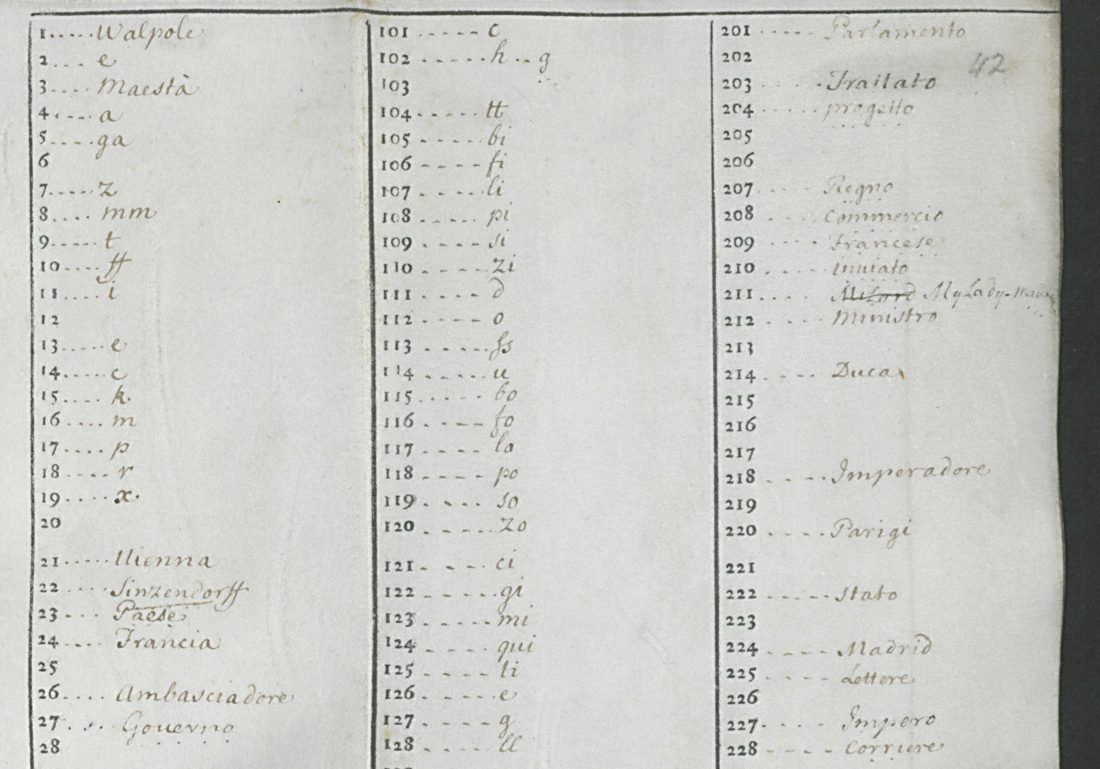 1.....Walpole
2....e
3.....Maestà
4.....a
5.....ga
6
7.....z
8.....mm
9.....t
10....ff
11....i
12
13....e
14.....c
15....k
16....m
17....p
18....r
19....x.
20
21.....Vienna
22....Sinzendorff
23....Paese
24....Francia
25
26....Ambasciadore
27....Governo
28
101.....c
102.....h..g
103
104.....tt
105.....bi
106.....fi
107.....li
108.....pi
109.....si
110.....zi
111.....d
112.....o
113.....ss
114.....u
115.....bo
116.....fo
117.....lo
118.....po
119.....so
120.....zo
121.....ci
122.....gi
123.....mi
124.....qui
125.....ti
126.....e
127.....g
128.....ll
201.....Parlamento
202
42
203.....Trattato
204.....progetto
205
206
207.....Regno
208.....Commercio
209.....Francese
210.....inviato
211.....Milord MyLady-
212.....Ministro
213
214.....Duca
215
216
217
218.....Imperadore
219
220.....Parigi
221
222.....Stato
223
224.....Madrid
225.....Lettere
226
227.....Impero
228.....Corriere